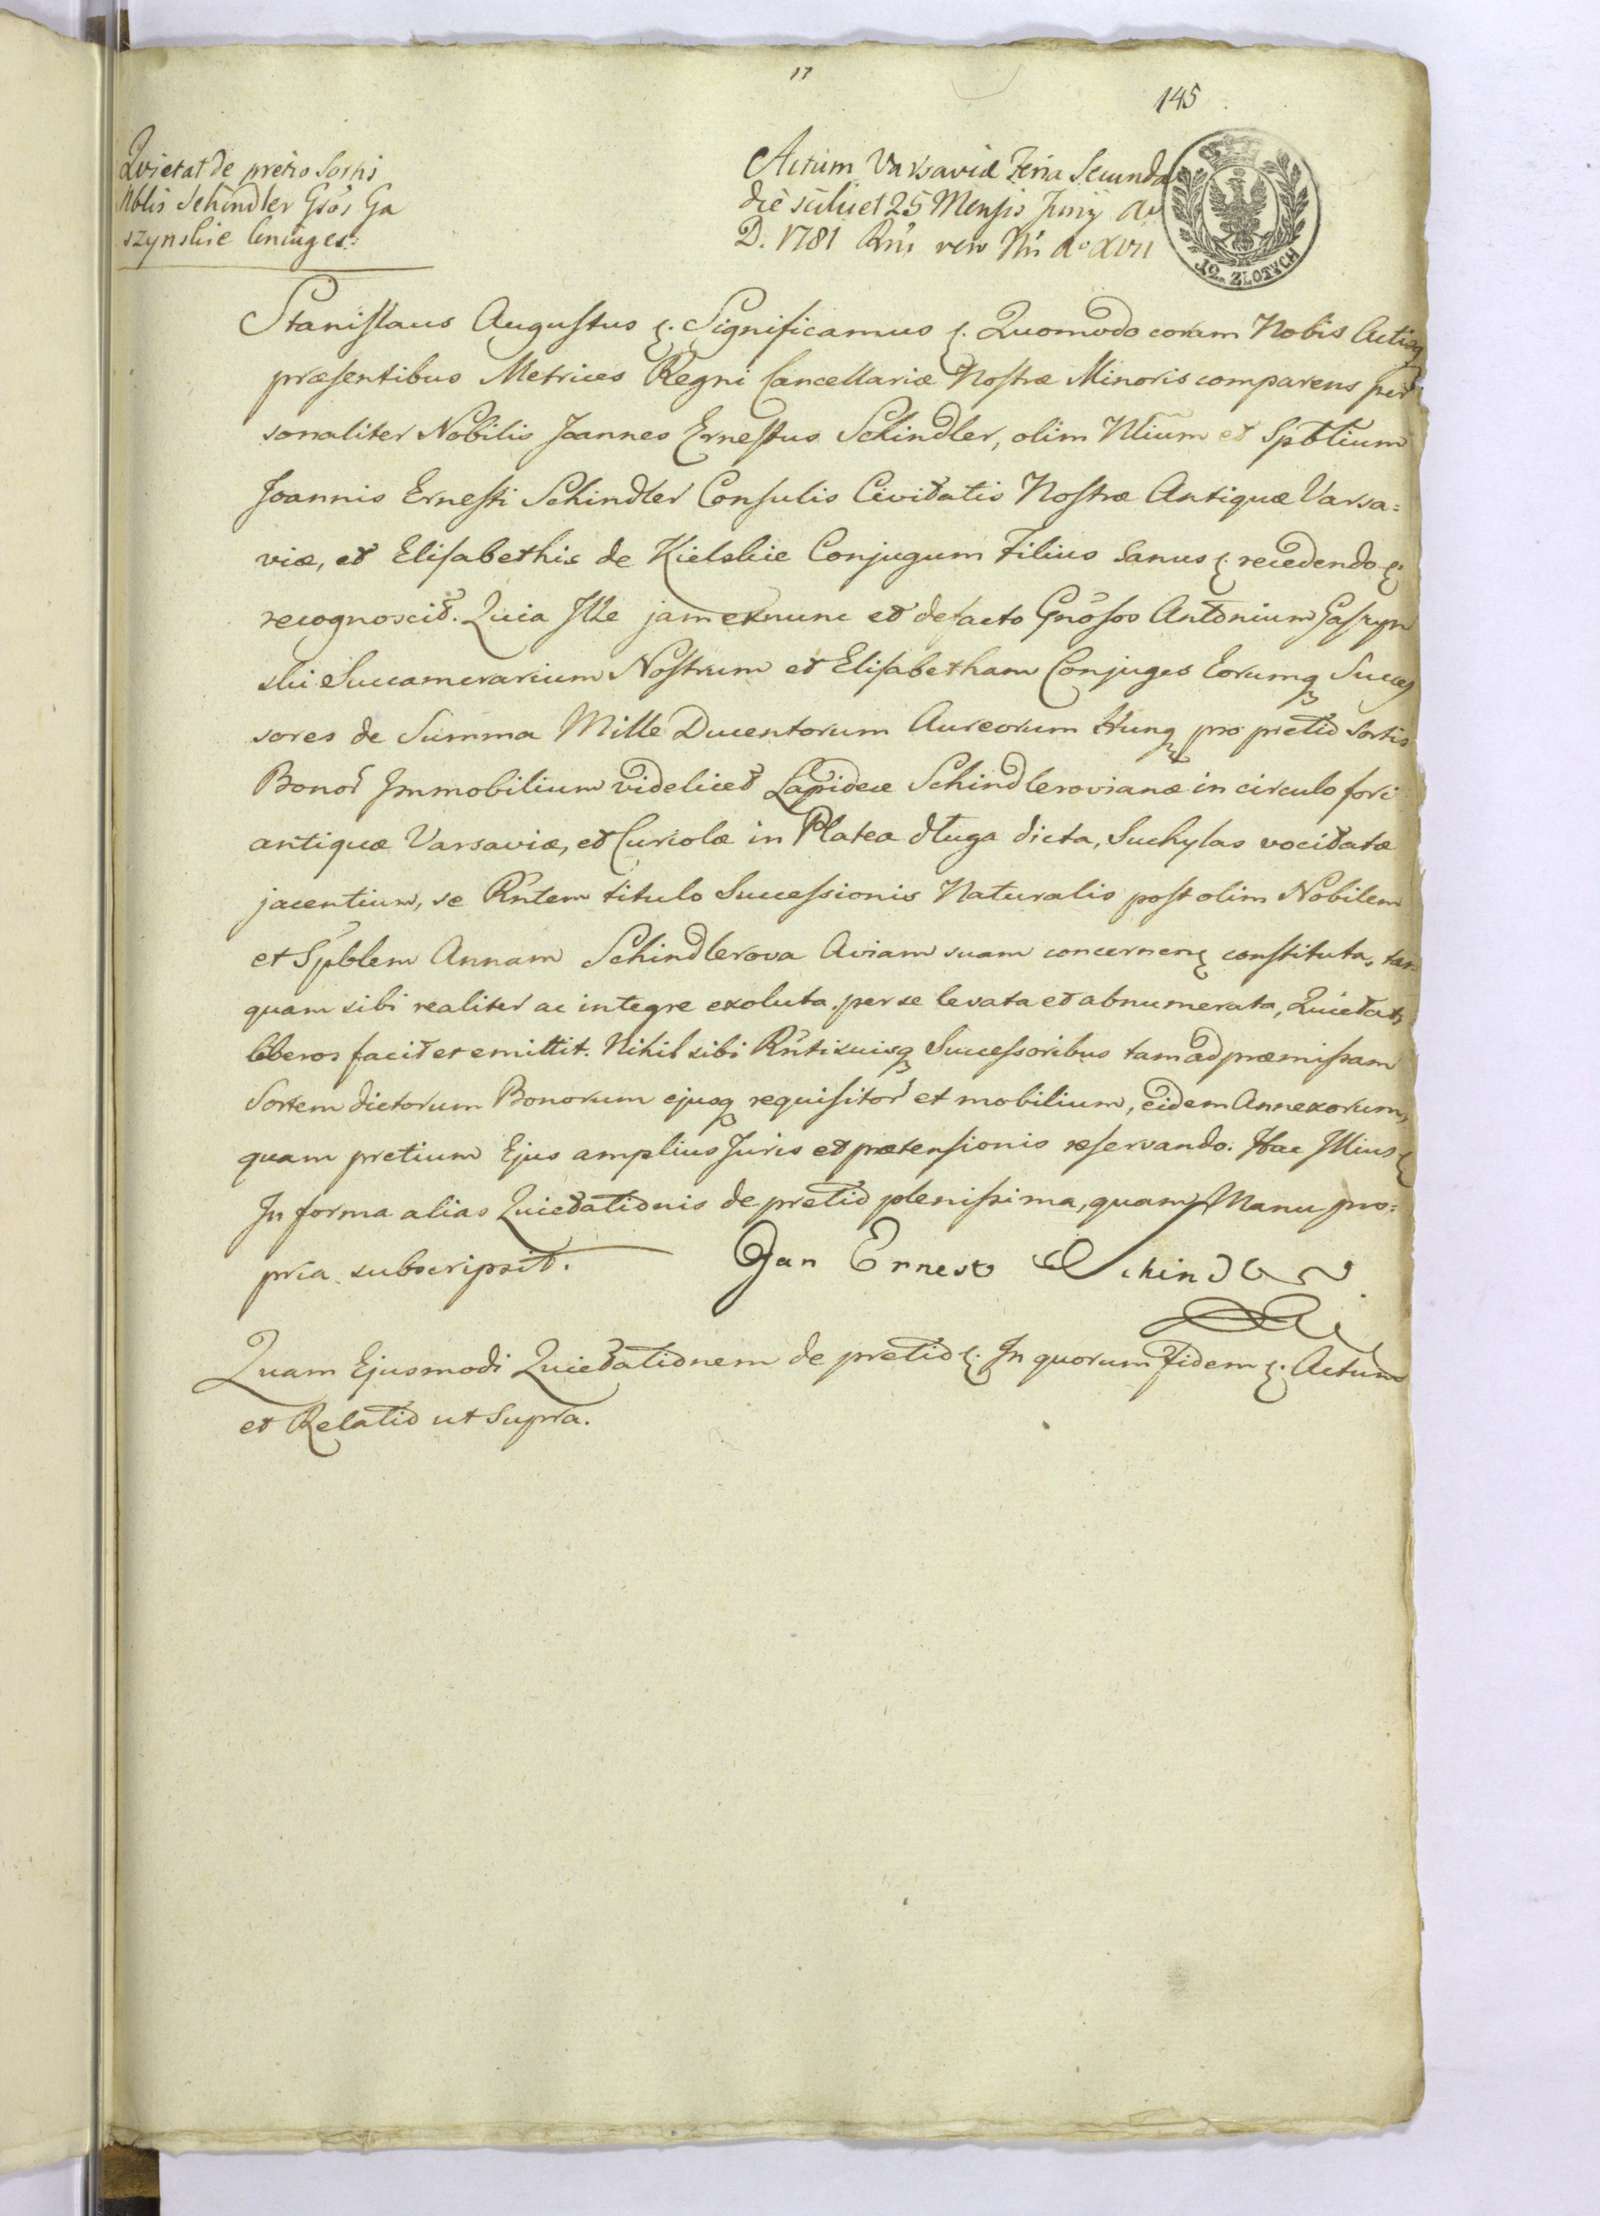 17
145
Quietat de pretio Sortis
Nblis Schindler Gsos Ga
szynskie Coniuges
Actum Varsaviæ Feria Secunda
die scilicet 25 Mensis Junij Ao
D. 1781 Rni vero Nri Ao XVII
12. ZŁOTYCH
Stanislaus Augustus &. Significamus &. Quomodo coram Nobis Actisq
præsentibus Metrices Regni Cancellariæ Nostræ Minoris comparens per
sonaliter Nobilis Joannes Ernestus Schindler, olim Nlium et Spblium
Joannis Ernesti Schindler Consulis Civitatis Nostræ Antiquæ Varsa=
viæ, et Elisabethis de Kielskie Conjugum Filius Sanus &. recedendo &.
recognoscit. Quia Ille jam exnunc et defacto Gnosos Antonium Gaszyn
ski Succamerarium Nostrum et Elisabetham Conjuges Eorumq Succes
sores de Summa Mille Ducentorum Aureorum Hung pro pretio Sortis
Bonor Immobilium videlicet Lapideæ Schindlerovianæ in circulo fori
antiquæ Varsaviæ, et Curiolæ in Platea długa dicta, Suchylas vocitatæ
jacentium, se Rntem titulo Successionis Naturalis post olim Nobilem
et Spblem Annam Schindlerova Aviam suam concernen constituta, tan
quam sibi realiter ac integre exoluta per se levata et abnumerata, Quietat,
liberos facit et emittit. Nihil sibi Rnti suisq Successoribus tam ad præmissam
Sortem dictorum Bonorum ejusq requisitor et mobilium, eidem Annexorum,
quam pretium Ejus amplius Juris et prætensionis reservando. Hac Illius &
In forma alias Quietationis de pretio plenissima, quam Manu pro=
pria subscripsit. Jan Ernest Schindler
Quam Ejusmodi Quietationem de pretio &. In quorum Fidem &. Actum
et Relatio ut Supra.